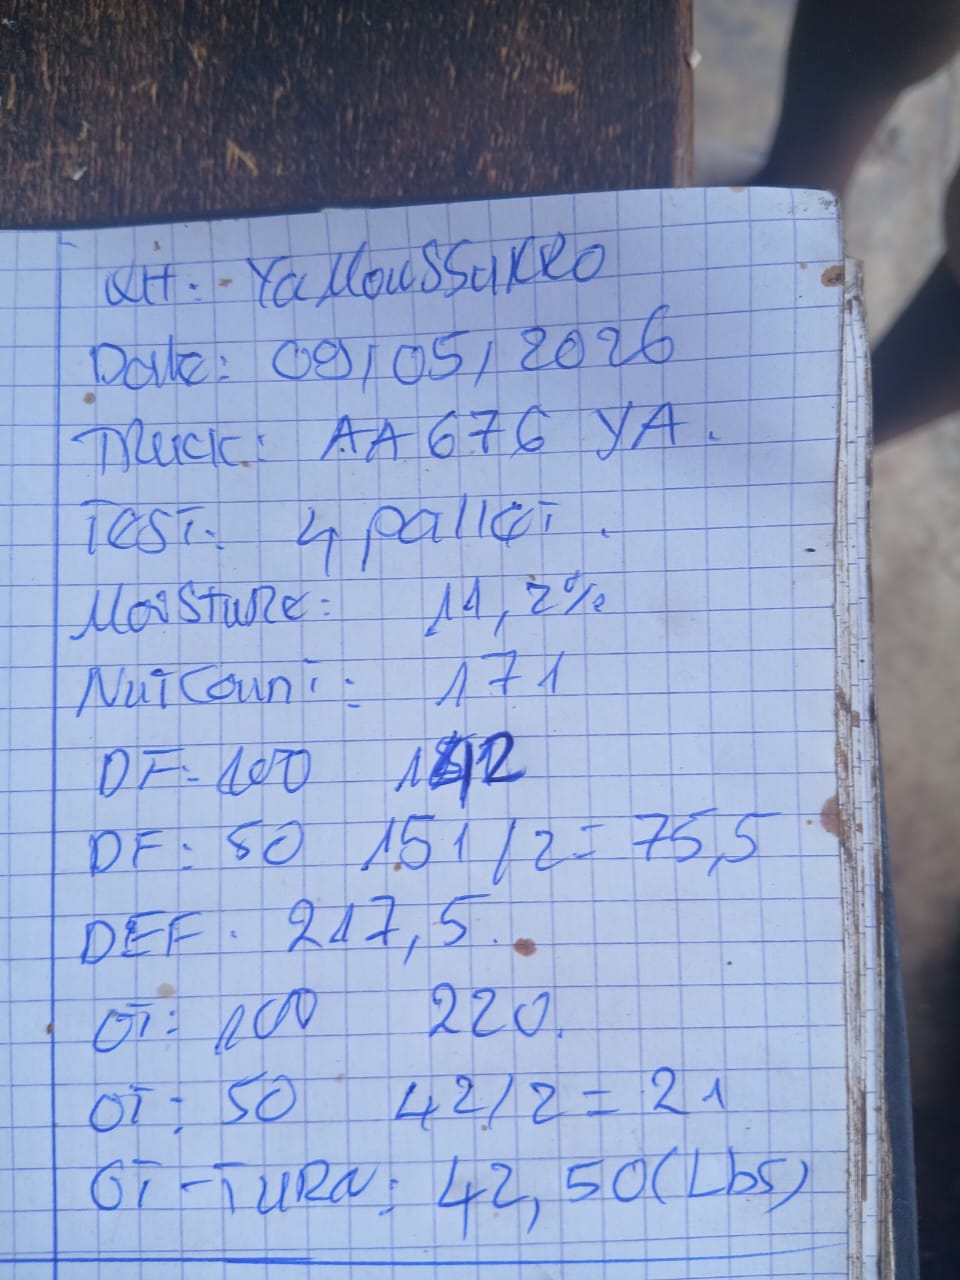 WH: - YaMouSSuKRO
Date: 09/05/2026
TRuck: AA 676 YA.
TEST: 4 pallet.
MoiSture: 11,2%
NutCount: 171
DF: 100 142
DF: 50 151/2 = 75,5
DEF. 217,5.
OT: 100 220.
OT: 50 42/2 = 21
OT-TURN: 42,50(Lbs)